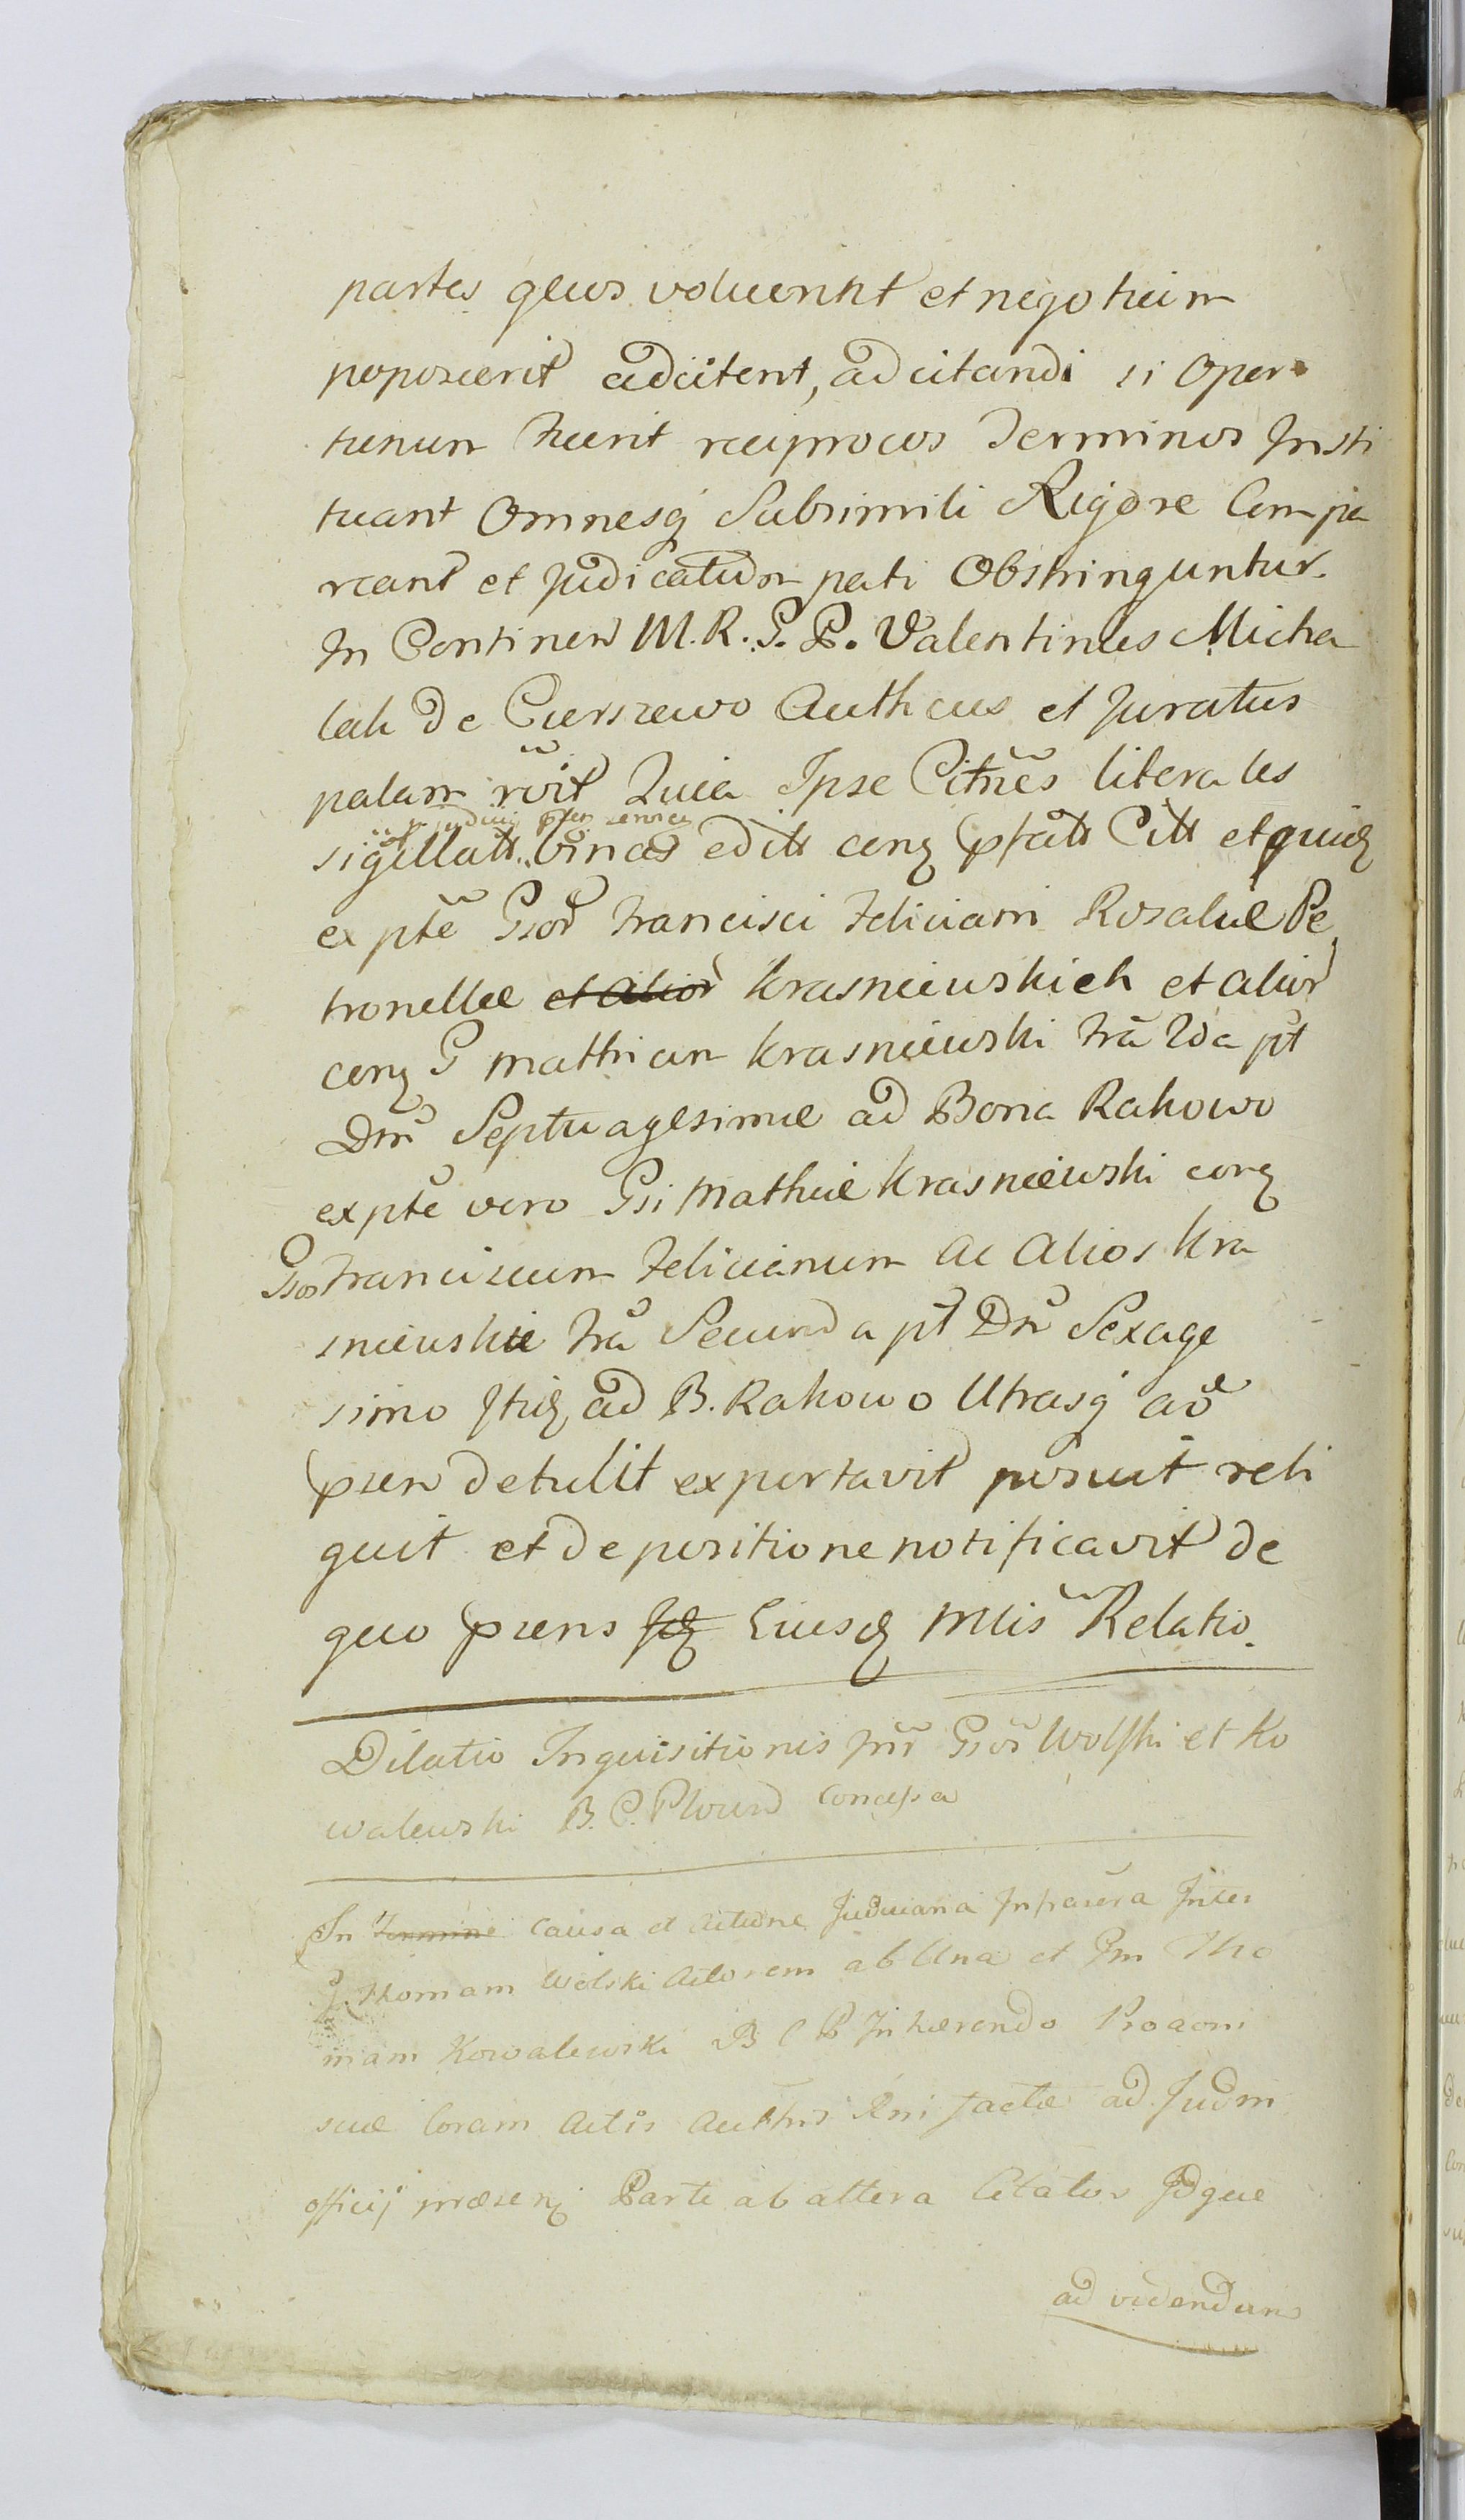 partes quas voluerint et negotium
poposcerit adcitent, adcitandi si opor
tunum fuerit reciprocos Terminos Insti
tuant Omnesq Subsimili Rigore Compa
reant et Judicatum pati Obstringuntur.
In Continen M. R. G. P. Valentinus Micha
lak de Cierszewo Authcus et Juratus
palam rvit Quia Ipse Citnes literales
sigillatt binas editt conq pfatt Citt et quidq
ex pte Gsor Francisci Feliciani Rosaliæ Pe
tronellæ et alior Krasniewskich et alior
conq G Mathiam Krasniewski fra 2da pt
Dm Septuagesimæ ad Bona Rakowo
ex pte vero Gsi Mathiæ Krasniewski conq
Gsos Franciscum Felicianum ac Alios Kra
sniewskie fra Secunda pt Dm Sexage
simo Itidq ad B. Rakowo Utrasq ad
psen detulit exportavit posuit reli
quit et depositione notificavit de
quo psens Ejusdq Mlis Relatio.
Dilatio Inquisitionis Inr Gsos Wolski et Ko
walewski B. C. Plocen Concessa
In Termino Causa et Actione Judiciaria Infrascra Inter
G. Thomam Wolski Actorem ab Una et Gm Tho
mam Kowalewski B C P Inhærendo Proaoni
suæ Coram Actis Authis Rni factæ ad Judm
officij præsenq Parte ab altera Citatos Idque
ad videndum